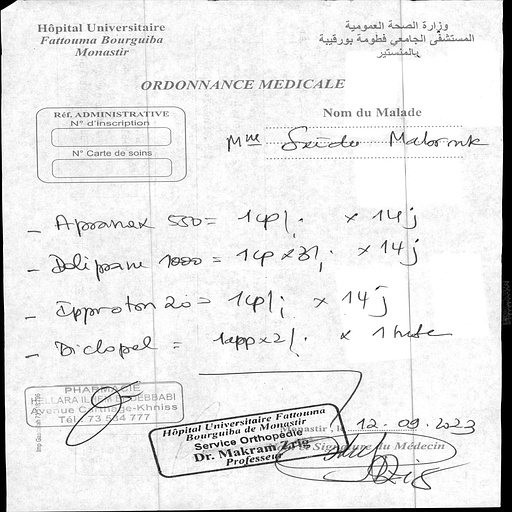 Hôpital Universitaire
Fattouma Bourguiba
Monastir
وزارة الصحة العمومية
المستشفى الجامعي فطومة بورقيبة
بالمنستير
ORDONNANCE MEDICALE
Réf. ADMINISTRATIVE
N° d'inscription
N° Carte de soins
Nom du Malade
Mme
- Apranax 550 = 1cp/j x 14j
- Dolipane 1000 = 1cp x3/j x 14j
- Ipproton 20 = 1cp/j x 14j
- Diclopel = 1app x2/j x 1 tube
PHARMACIE
Avenue Carthage-Khniss
Tél.: 73 534 777
Hôpital Universitaire Fattouma
Bourguiba de Monastir
Service Orthopédie
Dr. Makram Zrig
Professeur
Monastir, le 12.09.2023
Signature du Médecin